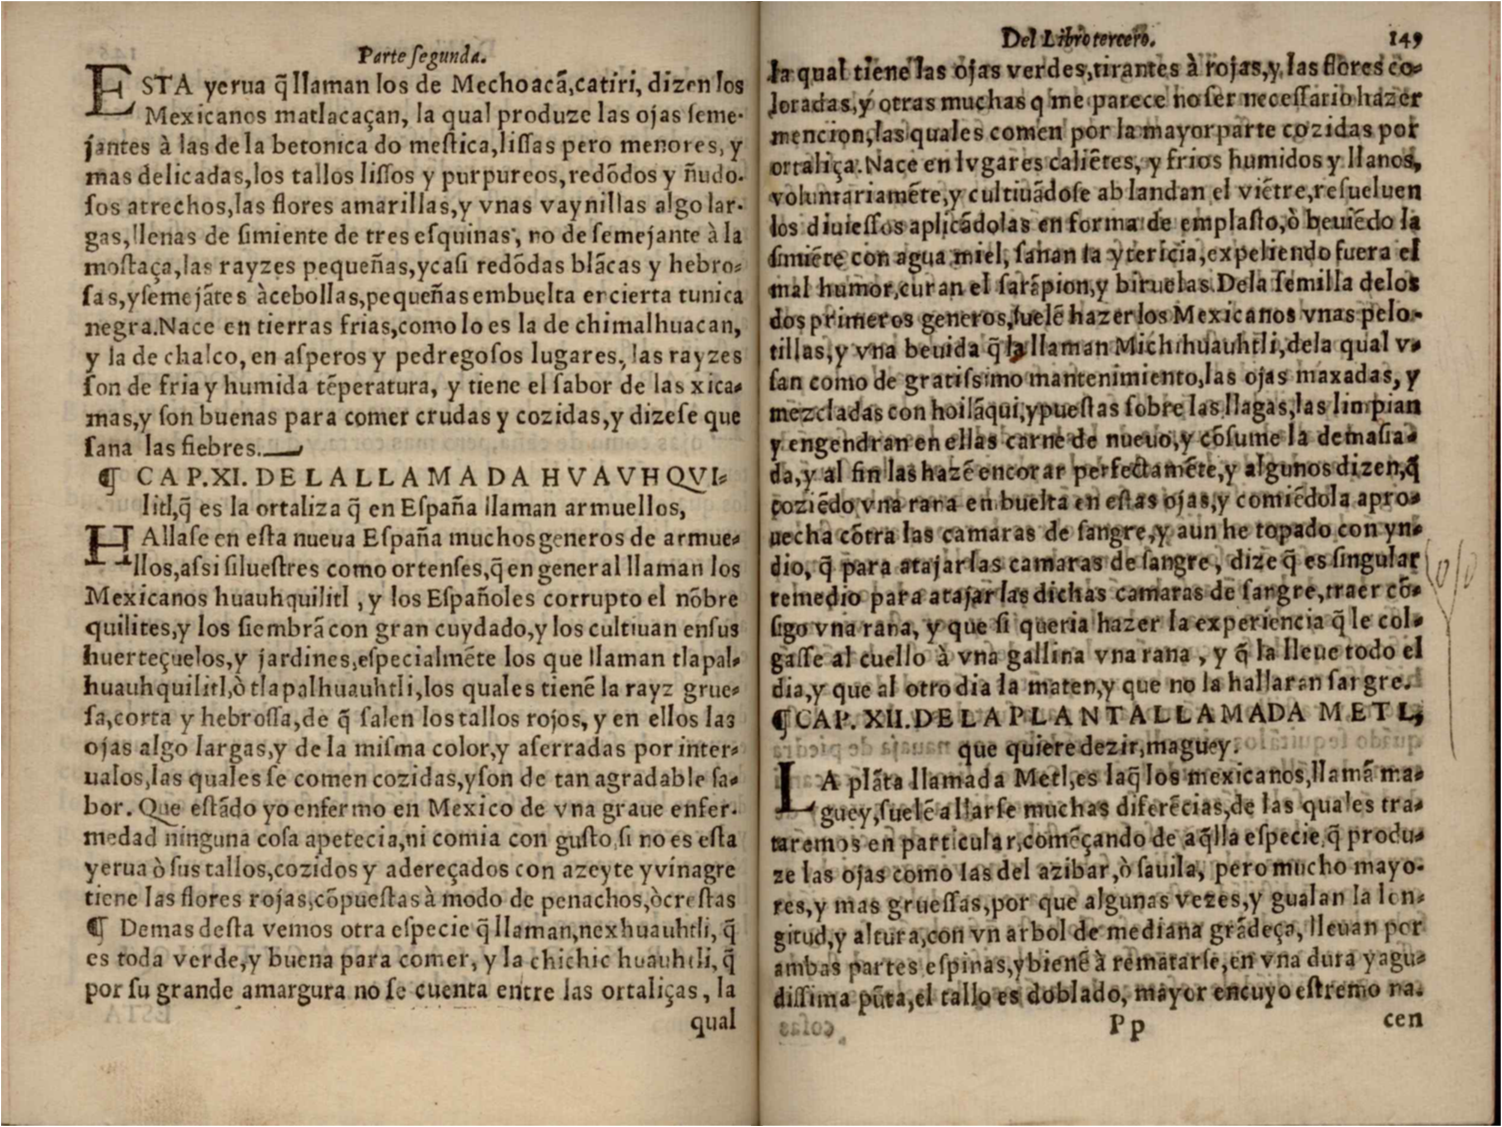 Parte ſegunda.
ESTA yerua q̃ llaman los de Mechoacã,catiri, dizen los
Mexicanos matlacaçan, la qual produze las ojas ſeme-
jantes à las de la betonica do meſtica,liſſas pero menores, y
mas delicadas,los tallos liſſos y purpureos,redõdos y ñudo-
ſos atrechos,las flores amarillas,y vnas vaynillas algo lar-
gas,llenas de ſimiente de tres eſquinas, no de ſemejante à la
moſtaça,las rayzes pequeñas,ycaſi redõdas blãcas y hebro-
ſas,yſemejãtes àcebollas,pequeñas embuelta encierta tunica
negra.Nace en tierras frias,como lo es la de chimalhuacan,
y la de chalco, en aſperos y pedregoſos lugares, las rayzes
ſon de fria y humida tẽperatura, y tiene el ſabor de las xica-
mas,y ſon buenas para comer crudas y cozidas,y dizeſe que
ſana las fiebres.
¶ CAP.XI. DE LA LLAMADA HVAVHQVI-
litl,q̃ es la ortaliza q̃ en Eſpaña llaman armuellos,
HAllaſe en eſta nueua Eſpaña muchos generos de armue-
llos,aſsi ſilueſtres como ortenſes,q̃ en general llaman los
Mexicanos huauhquilitl , y los Eſpañoles corrupto el nõbre
quilites,y los ſiembrã con gran cuydado,y los cultiuan enſus
huerteçuelos,y jardines,eſpecialmẽte los que llaman tlapal-
huauhquilitl,ò tlapalhuauhtli,los quales tienẽ la rayz grue-
ſa,corta y hebroſſa,de q̃ ſalen los tallos rojos, y en ellos las
ojas algo largas,y de la miſma color,y aſerradas por inter-
ualos,las quales ſe comen cozidas,yſon de tan agradable ſa-
bor. Que eſtãdo yo enfermo en Mexico de vna graue enfer-
medad ninguna coſa apetecia,ni comia con guſto,ſi no es eſta
yerua ò ſus tallos,cozidos y adereçados con azeyte yvinagre
tiene las flores rojas,cõpueſtas à modo de penachos,òcreſtas
¶ Demas deſta vemos otra eſpecie q̃ llaman,nexhuauhtli, q̃
es toda verde,y buena para comer, y la chichic huauhtli, q̃
por ſu grande amargura no ſe cuenta entre las ortaliças , la
qual
Del Libro tercero. 149
la qual tiene las ojas verdes,tirantes à rojas,y las flores co-
loradas,y otras muchas q me parece no ſer neceſſario hazer
mencion,las quales comen por la mayor parte cozidas por
ortaliça.Nace en lvgares caliẽtes, y frios humidos y llanos,
voluntariamẽte,y cultiuãdoſe ab landan el viẽtre,reſueluen
los diuieſſos aplicãdolas en forma de emplaſto,ò beuiẽdo la
ſimiẽte con agua miel, ſanan la ytericia,expeliendo fuera el
mal humor,curan el ſarãpion,y biruelas.Dela ſemilla delos
dos primeros generos,ſuelẽ hazer los Mexicanos vnas pelo-
tillas,y vna beuida q̃ la llaman Michihuauhtli,dela qual v-
ſan como de gratiſsimo mantenimiento,las ojas maxadas, y
mezcladas con hoilãqui,ypueſtas ſobre las llagas,las limpian
y engendran en ellas carne de nueuo,y cõſume la demaſia-
da,y al fin las hazẽ encorar perfectamẽte,y algunos dizen,q̃
coziẽdo vna rana en buelta en eſtas ojas,y comiẽdola apro-
uecha cõtra las camaras de ſangre,y aun he topado con yn-
dio, q̃ para atajar las camaras de ſangre, dize q̃ es ſingular
remedio para atajar las dichas camaras de ſangre,traer cõ-
ſigo vna rana, y que ſi queria hazer la experiencia q̃ le col-
gaſſe al cuello à vna gallina vna rana , y q̃ la lleue todo el
dia,y que al otro dia la maten,y que no la hallaran ſangre.
¶CAP. XII. DE LA PLANTA LLAMADA METL,
que quiere dezir,maguey.
LA plãta llamada Metl,es laq̃ los mexicanos,llamã ma-
guey,ſuelẽ allarſe muchas diferẽcias,de las quales tra-
taremos en particular,comẽçando de aq̃lla eſpecie,q̃ produ-
ze las ojas como las del azibar,ò ſauila, pero mucho mayo-
res,y mas grueſſas,por que algunas vezes,y gualan la lon-
gitud,y altura,con vn arbol de mediana grãdeça, lleuan por
ambas partes eſpinas,ybienẽ à rematarſe,en vna dura yagu-
diſſima pũta,el tallo es doblado, mayor encuyo eſtremo na-
Pp cen